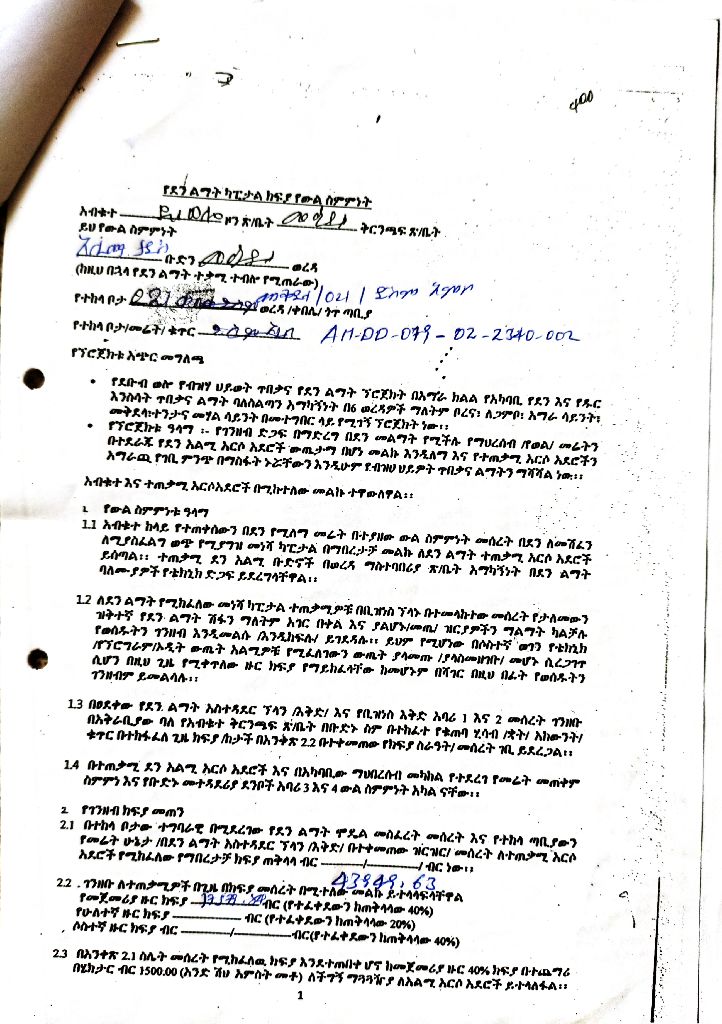 400
የደን ልማት ካፒታል ክፍያ የውል ስምምነት
አብቁተ ደ/ወሎ ዞን ጽ/ቤት መቅደላ ቅርንጫፍ ጽ/ቤት
ይህ የውል ስምምነት
ቡድን መቅደላ ወረዳ
(ከዚህ በኋላ የደን ልማት ተቃሚ ተብሎ የሚጠራው)
የተከላ ቦታ /021/ ወረዳ /ቀበሌ/ ጎጥ ጣቢያ
የተከላ ቦታ/መሬት/ ቁጥር AM-DD-079-02-2340-002
የፕሮጀክቱ አጭር መግለጫ
• የደቡብ ወሎ የብዝሃ ህይወት ጥበቃና የደን ልማት ፕሮጀክት በአማራ ክልል የአካባቢ የደን እና የዱር
እንስሳት ጥበቃና ልማት ባለስልጣን አማካኝነት በ6 ወረዳዎች ማለትም ቦረና፣ ለጋምቦ፣ አማራ ሳይንት፣
መቅደላ፣ተንታና መሃል ሳይንት በመተግበር ላይ የሚገኝ ፕሮጀክት ነው፡፡
• የፕሮጀክቱ ዓላማ ፡- የገንዘብ ድጋፍ በማድረግ በደን መልማት የሚችሉ የማህረሰብ /የወል/ መሬትን
በተደራጁ የደን አልሚ አርሶ አደሮች ውጤታማ በሆነ መልኩ እንዲለማ እና የተጠቃሚ አርሶ አደሮችን
አማራጪ የገቢ ምንጭ በማስፋት ኑሯቸውን እንዲሁም የብዝሀ ህይዎት ጥበቃና ልማትን ማሻሻል ነው፡፡
አብቁተ እና ተጠቃሚ አርሶአደሮች በሚከተለው መልኩ ተዋውለዋል፡፡
1. የውል ስምምነቱ ዓላማ
1.1 አብቁተ ከላይ የተጠቀሰውን በደን የሚለማ መሬት በተያዘው ውል ስምምነት መሰረት በደን ለመሸፈን
ለሚያስፈልግ ወጭ የሚያግዝ መነሻ ካፒታል በማበረታቻ መልኩ ለደን ልማት ተጠቃሚ አርሶ አደሮች
ይሰጣል፡፡ ተጠቃሚ ደን አልሚ ቡድኖች በወረዳ ማስተባበሪያ ጽ/ቤት አማካኝነት በደን ልማት
ባለሙያዎች የቴክኒክ ድጋፍ ይደረግላቸዋል፡፡
1.2 ለደን ልማት የሚከፈለው መነሻ ካፒታል ተጠቃሚዎቹ በቢዝነስ ፕላኑ በተመላከተው መሰረት የታለመውን
ዝቅተኛ የደን ልማት ሽፋን ማለትም አገር በቀል እና ያልሆኑ/መጤ/ ዝርያዎችን ማልማት ካልቻሉ
የወሰዱትን ገንዘብ እንዲመልሱ /እንዲከፍሉ/ ይገደዳሉ፡፡ ይህም የሚሆነው በሶስተኛ ወገን የቴክኒክ
/የፕሮግራም/ኦዲት ውጤት አልሚዎቹ የሚፈለገውን ውጤት ያላመጡ /ያላስመዘገቡ/ መሆኑ ሲረጋገጥ
ሲሆን በዚህ ጊዜ የሚቀጥለው ዙር ክፍያ የማይከፈላቸው ከመሆኑም በሻገር በዚህ በፊት የወሰዱትን
ገንዘብም ይመልሳሉ፡፡
1.3 በፀደቀው የደን ልማት አስተዳደር ፕላን /እቅድ/ እና የቢዝነስ እቅድ አባሪ 1 እና 2 መሰረት ገንዘቡ
በአቅራቢያው ባለ የአብቁተ ቅርንጫፍ ጽ/ቤት በቡድኑ ስም በተከፈተ የቁጠባ ሂሳብ /ቋት/ አካውንት/
ቁጥር በተከፋፈለ ጊዜ ክፍያ /ከታች በአንቀጽ 2.2 በተቀመጠው የክፍያ ስራዓት/ መሰረት ገቢ ይደረጋል፡፡
1.4 በተጠቃሚ ደን አልሚ አርሶ አደሮች እና በአካባቢው ማህበረሰብ መካከል የተደረገ የመሬት መጠቀም
ስምምነ እና የቡድኑ መተዳደሪያ ደንቦች አባሪ 3 እና 4 ውል ስምምነት አካል ናቸው፡፡
2. የገንዘብ ክፍያ መጠን
2.1 በተከላ ቦታው ተግባራዊ በሚደረገው የደን ልማት ሞዴል መስፈረት መሰረት እና የተከላ ጣቢያውን
የመሬት ሁኔታ /በደን ልማት አስተዳደር ፕላን /እቅድ/ በተቀመጠው ዝርዝር/ መሰረት ለተጠቃሚ አርሶ
አደሮች የሚከፈለው የማበረታቻ ክፍያ ጠቅላላ ብር ———/———/ ብር ነው፡፡
43949.63
2.2 . ገንዘቡ ለተጠቃሚዎች በጊዜ በክፍያ መሰረት በሚተለው መልኩ ይተላላፍላቸዋል
የመጀመሪያ ዙር ክፍያ ብር (የተፈቀደውን ከጠቅላላው 40%)
የሁለተኛ ዙር ክፍያ ——— ብር (የተፈቀደውን ከጠቅላላው 20%)
ሶስተኛ ዙር ክፍያ ብር ———/———ብር(የተፈቀደውን ከጠቅላላው 40%)
2.3 በአንቀጽ 2.1 ስሌት መሰረት የሚከፈለዉ ክፍያ እንደተጠበቀ ሆኖ ከመጀመሪያ ዙር 40% ክፍያ በተጨማሪ
በሄክታር ብር 1500.00 (አንድ ሽህ አምስት መቶ) ለችግኝ ማጓጓዣያ ለአልሚ አርሶ አደሮች ይተላለፋል፡፡
1